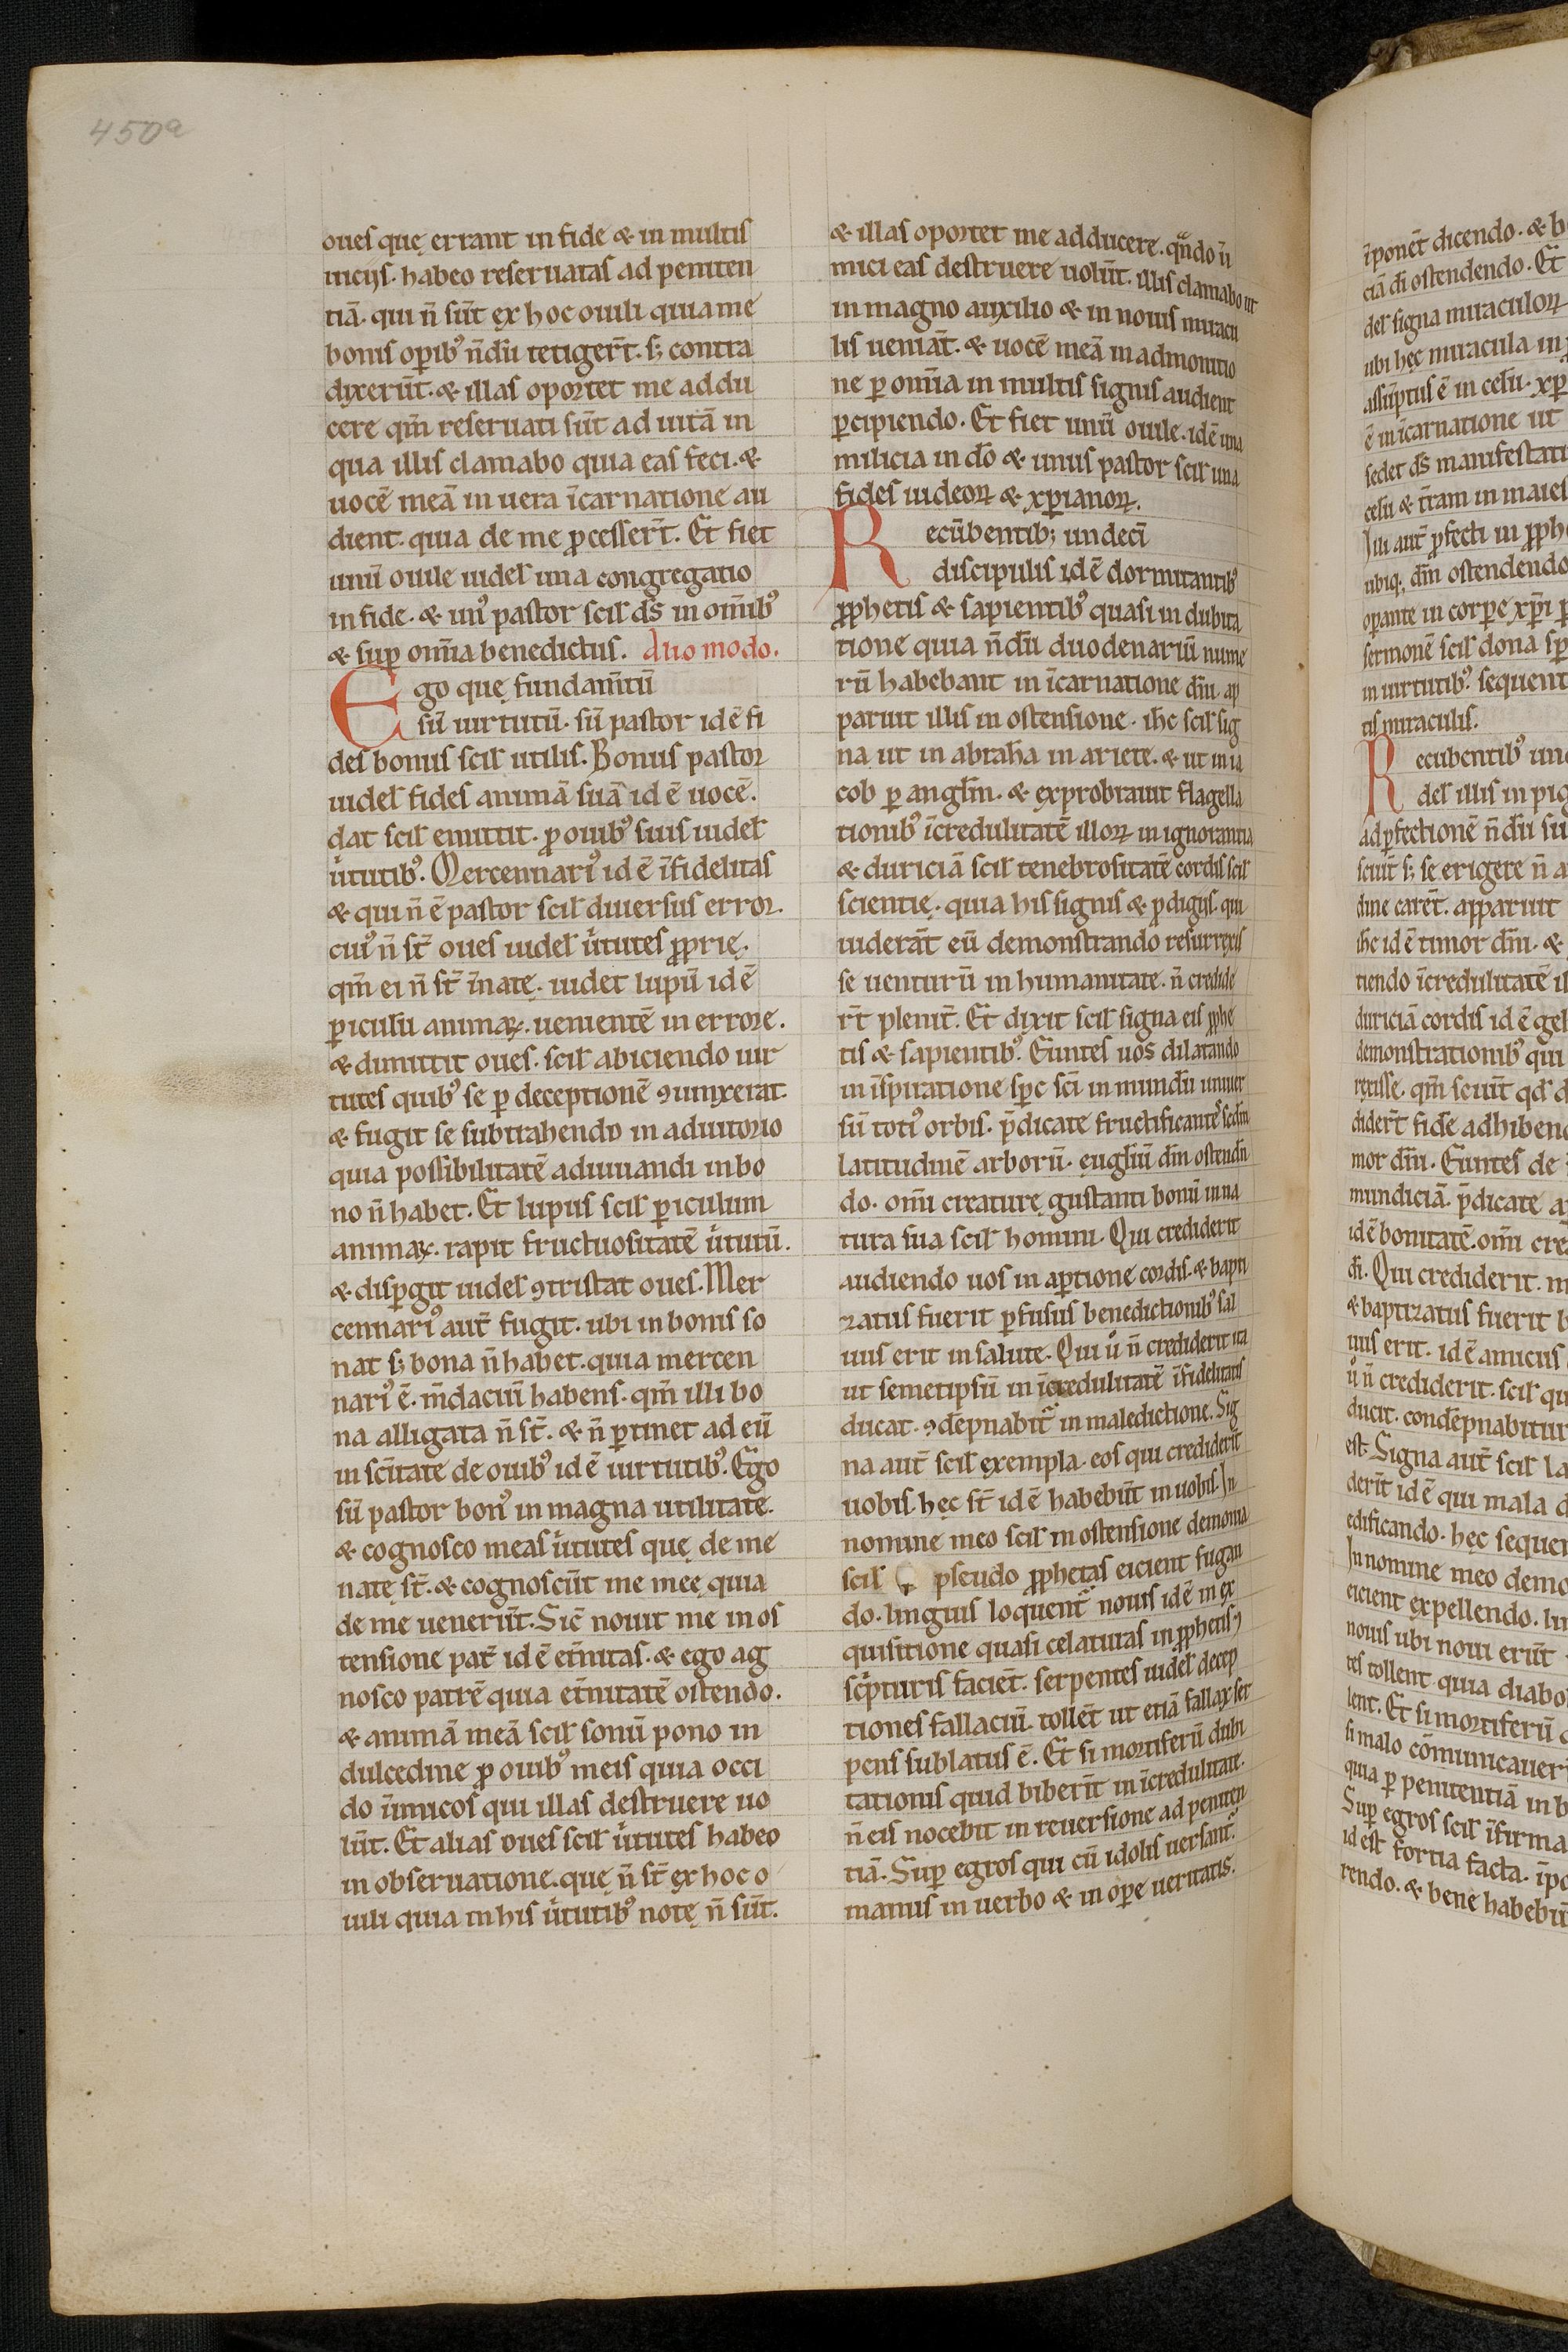 450a
oues quę errant in fide & in multis
uiciis. habeo reseruatas ad peniten
tiā. qui n̄ sūt ex hoc ouili quia me
bonis opib᾽ n̄dū tetiger̄t. s; contra
dixerūt. & illas oportet me addu
cere qm̄ reseruati sūt ad uitā in
qua illis clamabo quia eas feci. &
uocē meā in uera īcarnatione au
dient. quia de me pcesser̄t. Et fiet
unū ouile uidel᾽ una congregatio
in fide. & un᾽ pastor scil᾽ ds̄ in om̄ib᾽
& sup om̄ia benedictus. duo modo.
Ego quę fundam̄tū
sū uirtutū. sū pastor id ē fi
des bonus scil᾽ utilis. Bonus pastor
uidel᾽ fides animā suā id ē uocē.
dat scil᾽ emittit. p ouib᾽ suis uidel᾽
u᾽tutib᾽. Mercennari᾽ id ē īfidelitas
& qui n̄ ē pastor scil᾽ diuersus error.
cui᾽ n̄ st̄ oues uidel᾽ u᾽tutes pprię.
qm̄ ei n̄ st̄ īnatę. uidet lupū id ē
piculū animaꝝ. uenientē in errore.
& dimittit oues. scil᾽ abiciendo uir
tutes quib᾽ se p deceptionē ꝯiunxerat.
& fugit se subtrahendo in adiutorio
quia possibilitatē adiuuandi in bo
no n̄ habet. Et lupus scil᾽ piculum
animaꝝ. rapit fructuositatē u᾽tutū.
& dispgit uidel᾽ ꝯtristat oues. Mer
cennari᾽ aut̄ fugit. ubi in bonis so
nat s; bona n̄ habet. quia mercen
nari᾽ ē. m̄daciū habens. qm̄ illi bo
na alligata n̄ st̄. & n̄ ptinet ad eū
in scītate de ouib᾽ id ē uirtutib᾽. Ego
sū pastor bon᾽ in magna utilitate.
& cognosco meas u᾽tutes quę de me
natę st̄. & cognoscūt me meę quia
de me uenerūt. Sic̄ nouit me in os
tensione pat̄ id ē et̄nitas. & ego ag
nosco patrē quia et̄nitatē ostendo.
& animā meā scil᾽ sonū pono in
dulcedine p ouib᾽ meis quia occi
do inīmicos qui illas destruere uo
lūt. Et alias oues scil᾽ u᾽tutes habeo
in obseruatione. quę n̄ st̄ ex hoc o
uili quia in his u᾽tutib᾽ notę n̄ sūt.
& illas oportet me adducere. qn̄do in̄
mici eas destruere uolūt. illis clamabo ut
in magno auxilio & in nouis miracu
lis ueniāt. & uocē meā in admonitio
ne p om̄ia in multis signis audient
pcipiendo. Et fiet unū ouile. id ē una
milicia in dō & unus pastor scil᾽ una
fides iudeoꝝ & xp̄ianoꝝ.
Recūbentib; undecī
discipulis id ē dormitantib᾽
pphetis & sapientib᾽ quasi in dubita
tione quia n̄dū duodenariū nume
rū habebant in īcarnatione dn̄i. ap
paruit illis in ostensione. ih̄c scil᾽ sig
na ut in abrahā in ariete. & ut in ia
cob p anglm̄. & exprobrauit flagella
tionib᾽ īcredulitatē illoꝝ in ignorantia
& duriciā scil᾽ tenebrositatē cordis scil᾽
scientię. quia his signis & pdigiis. qui
uiderāt eū demonstrando resurrexis
se uenturū in humanitate. n̄ credide
rt̄ plenit̄. Et dixit scil᾽ signa eis pphe
tis & sapientib᾽. Euntes uos dilatando
in īspiratione spc̄ scī in mundū uniuer
sū toti᾽ orbis. p̄dicate fructificantes sedm̄
latitudinē arborū. euglīū dm̄ ostendn̄
do. om̄i creaturę gustanti bonū in na
tura sua scil᾽ homini. Qui crediderit
audiendo uos in aptione cordis. & bapti
zatus fuerit pfusus benedictionib᾽ sal
uus erit in salute. Qui u᾽ n̄ crediderit ita
ut semetipsū in īcredulitatē īfidelitatis
ducat. ꝯdēpnabit᾽ in maledictione. Sig
na aut̄ scil᾽ exempla. eos qui credider̄it
uobis. hęc st̄ id ē habebūt in uobis. In
nomine meo scil᾽ in ostensione demonia
scil᾽ pseudo pphetas eicient fugan
do. linguis loquent᾽ nouis id ē in ex
quisitione quasi celaturas in pphetis ⁊
scͥpturis faciēt. serpentes uidel᾽ decep
tiones fallaciū. tollēt ut etiā fallax ser
pens sublatus ē. Et si mortiferū dubi
tationis quid biber̄it in īcredulitate.
n̄ eis nocebit in reuersione ad peniten
tiā. Sup egros qui cū idolis uersant᾽.
manus in uerbo & in ope ueritatis.
īponēt dicendo. & b
ciā dī ostendendo. Et
del᾽ signa miraculoꝝ
ubi hęc miracula in
assūptus ē in celū. xp
ē in īcarnatione ut
sedet ds̄ manifestati
celū & t̄ram in maies
Illi aut̄ pfecti in pph
ubiq; dm̄ ostendendo
opante in corpe xp̄i
sermonē scil᾽ dona sp
in uirtutib᾽. sequent
tis miraculis.
Recubentib᾽ und
del᾽ illis in pig
ad pfectionē n̄dū su
sciūt s; se erigere n̄ a
dine carēt. apparuit
ih̄c id ē timor dn̄i. &
tiendo īcredulitatē il
duriciā cordis id ē gel
demonstrationib᾽ qui
rexisse. qm̄ sciūt qd᾽ d
dider̄t fidē adhibend
mor dn̄i. Euntes de
mundiciā. p̄dicate a
id ē bonitatē. om̄i cre
dī. Qui crediderit. m
& baptizatus fuerit b
uus erit. id ē amicus
u᾽ n̄ crediderit. scil᾽ qu
ducit. condēpnabitur
est. Signa aut̄ scil᾽ la
der̄it id ē qui mala d
edificando. hęc sequen
In nomine meo demo
eicient expellendo. lin
nouis ubi noui erūt
tes tollent quia diabo
lent. Et si mortiferū q
si malo cōmunicauer
quia p penitentiā in b
Sup egros scil᾽ īfirma
id est fortia facta. īpo
rendo. & bene habebūt